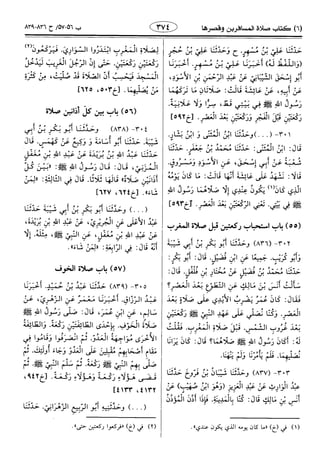 (٦) كتاب صلاة المسافرين وقصرها
٣٧٤
ب ٥٦، ٥٧/ ح ٨٣٦-٨٣٩
حَدَّثَنَا عَلِيُّ بْنُ مُسْهِرٍ. ح وَحَدَّثَنَا عَلِيُّ بْنُ حُجْرٍ
(وَاللَّفْظُ لَهُ) أَخْبَرَنَا عَلِيُّ بْنُ مُسْهِرٍ. أَخْبَرَنَا
أَبُو إِسْحَقَ الشَّيْبَانِيُّ عَنْ عَبْدِ الرَّحْمَنِ بْنِ الْأَسْوَدِ،
عَنْ أَبِيهِ، عَنْ عَائِشَةَ قَالَتْ: صَلَاتَانِ مَا تَرَكَهُمَا
رَسُولُ اللهِ ﷺ فِي بَيْتِي قَطُّ، سِرًّا وَلَا عَلَانِيَةً.
رَكْعَتَيْنِ قَبْلَ الْفَجْرِ وَرَكْعَتَيْنِ بَعْدَ الْعَصْرِ. [ح٥٩٢]
٣٠١- (...) وحَدَّثَنَا ابْنُ الْمُثَنَّى وَابْنُ بَشَّارٍ.
قَالَ: ابْنُ الْمُثَنَّى: حَدَّثَنَا مُحَمَّدُ بْنُ جَعْفَرٍ. حَدَّثَنَا
شُعْبَةُ عَنْ أَبِي إِسْحَقَ، عَنِ الْأَسْوَدِ وَمَسْرُوقٍ.
قَالَا: نَشْهَدُ عَلَى عَائِشَةَ أَنَّهَا قَالَتْ: مَا كَانَ يَوْمُهُ
الَّذِي كَانَ(١) يَكُونُ عِنْدِي إِلَّا صَلَّاهُمَا رَسُولُ اللهِ
ﷺ فِي بَيْتِي. تَعْنِي الرَّكْعَتَيْنِ بَعْدَ الْعَصْرِ. [خ٥٩٣]
(٥٥) باب استحباب ركعتين قبل صلاة المغرب
٣٠٢- (٨٣٦) وحَدَّثَنَا أَبُو بَكْرِ بْنُ أَبِي شَيْبَةَ
وَأَبُو كُرَيْبٍ. جَمِيعًا عَنِ ابْنِ فُضَيْلٍ. قَالَ: أَبُو بَكْرٍ:
حَدَّثَنَا مُحَمَّدُ بْنُ فُضَيْلٍ عَنْ مُخْتَارِ بْنِ فُلْفُلٍ. قَالَ:
سَأَلْتُ أَنَسَ بْنَ مَالِكٍ عَنِ التَّطَوُّعِ بَعْدَ الْعَصْرِ؟
فَقَالَ: كَانَ عُمَرُ يَضْرِبُ الْأَيْدِيَ عَلَى صَلَاةٍ بَعْدَ
الْعَصْرِ. وَكُنَّا نُصَلِّي عَلَى عَهْدِ النَّبِيِّ ﷺ رَكْعَتَيْنِ
بَعْدَ غُرُوبِ الشَّمْسِ. قَبْلَ صَلَاةِ الْمَغْرِبِ. فَقُلْتُ
لَهُ: أَكَانَ رَسُولُ اللهِ ﷺ صَلَّاهُمَا؟ قَالَ: كَانَ يَرَانَا
نُصَلِّيهِمَا. فَلَمْ يَأْمُرْنَا وَلَمْ يَنْهَنَا.
٣٠٣- (٨٣٧) وحَدَّثَنَا شَيْبَانُ بْنُ فَرُّوخَ. حَدَّثَنَا
عَبْدُ الْوَارِثِ عَنْ عَبْدِ الْعَزِيزِ (وَهُوَ ابْنُ صُهَيْبٍ) عَنْ
أَنَسِ بْنِ مَالِكٍ قَالَ: كُنَّا بِالْمَدِينَةِ. فَإِذَا أَذَّنَ الْمُؤَذِّنُ
لِصَلَاةِ الْمَغْرِبِ ابْتَدَرُوا السَّوَارِيَ. فَيَرْكَعُونَ(٢)
رَكْعَتَيْنِ رَكْعَتَيْنِ. حَتَّى إِنَّ الرَّجُلَ الْغَرِيبَ لَيَدْخُلُ
الْمَسْجِدَ فَيَحْسِبُ أَنَّ الصَّلَاةَ قَدْ صُلِّيَتْ، مِنْ كَثْرَةِ
مَنْ يُصَلِّيهِمَا. [خ٥٠٣، ٦٢٥]
(٥٦) باب بين كل أذانين صلاة
٣٠٤- (٨٣٨) وحَدَّثَنَا أَبُو بَكْرِ بْنُ أَبِي
شَيْبَةَ. حَدَّثَنَا أَبُو أُسَامَةَ وَ وَكِيعٌ عَنْ كَهْمَسٍ. قَالَ
حَدَّثَنَا عَبْدُ اللهِ بْنُ بُرَيْدَةَ عَنْ عَبْدِ اللهِ بْنِ مُغَفَّلٍ
الْمُزَنِيِّ، قَالَ: قَالَ رَسُولُ اللهِ ﷺ: «بَيْنَ كُلِّ
أَذَانَيْنِ صَلَاةٌ» قَالَهَا ثَلَاثًا. قَالَ فِي الثَّالِثَةِ: «لِمَنْ
شَاءَ». [خ٦٢٤، ٦٢٧]
(...) وحَدَّثَنَا أَبُو بَكْرِ بْنُ أَبِي شَيْبَةَ حَدَّثَنَا
عَبْدُ الْأَعْلَى عَنِ الْجُرَيْرِيِّ، عَنْ عَبْدِ اللهِ بْنِ بُرَيْدَةَ،
عَنْ عَبْدِ اللهِ بْنِ مُغَفَّلٍ، عَنِ النَّبِيِّ ﷺ، مِثْلَهُ. إِلَّا
أَنَّهُ قَالَ: فِي الرَّابِعَةِ: «لِمَنْ شَاءَ».
(٥٧) باب صلاة الخوف
٣٠٥- (٨٣٩) حَدَّثَنَا عَبْدُ بْنُ حُمَيْدٍ. أَخْبَرَنَا
عَبْدُ الرَّزَّاقِ. أَخْبَرَنَا مَعْمَرٌ عَنِ الزُّهْرِيِّ، عَنْ
سَالِمٍ، عَنِ ابْنِ عُمَرَ، قَالَ: صَلَّى رَسُولُ اللهِ ﷺ
صَلَاةَ الْخَوْفِ. بِإِحْدَى الطَّائِفَتَيْنِ رَكْعَةً. وَالطَّائِفَةُ
الْأُخْرَى مُوَاجِهَةُ الْعَدُوِّ. ثُمَّ انْصَرَفُوا وَقَامُوا فِي
مَقَامِ أَصْحَابِهِمْ مُقْبِلِينَ عَلَى الْعَدُوِّ وَجَاءَ أُولَئِكَ. ثُمَّ
صَلَّى بِهِمُ النَّبِيُّ ﷺ رَكْعَةً. ثُمَّ سَلَّمَ النَّبِيُّ ﷺ. ثُمَّ
قَضَى هَؤُلَاءِ رَكْعَةً. وَهَؤُلَاءِ رَكْعَةً. [خ٩٤٢،
٤١٣٢، ٤١٣٣]
(...) وحَدَّثَنِيهِ أَبُو الرَّبِيعِ الزَّهْرَانِيُّ. حَدَّثَنَا
(١) في (خ) «ما كان يومه الذي يكون عندي».
(٢) في (خ) «فركعوا ركعتين حتى».